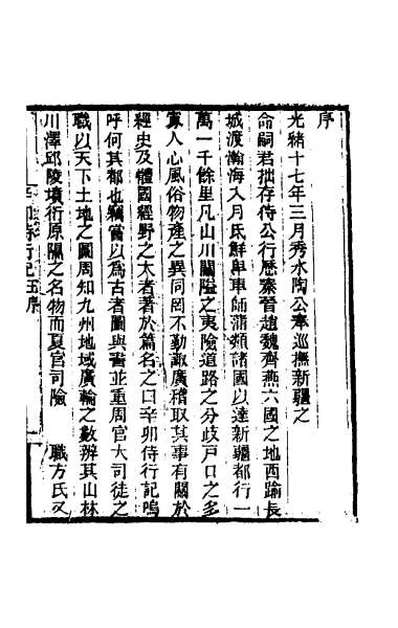 序
光緒十七年三月秀水陶公奉巡撫新疆之
命嗣君拙存侍公行歷秦晉趙魏齊燕六國之地西踰長
城渡瀚海入月氏鮮卑車師蒲類諸國以達新疆都行一
萬一千餘里凡山川關隘之夷險道路之分歧戶口之多
寡人心風俗物產之異同罔不勤諏廣稽取其事有關於
經史及體國經野之大者著於篇名之曰辛卯侍行記嗚
呼何其都也竊嘗以為古者圖與書並重周官大司徒之
職以天下土地之圖周知九州地域廣輪之數辨其山林
川澤邱陵墳衍原隰之名物而夏官司險　職方氏又
辛卯侍行記 序